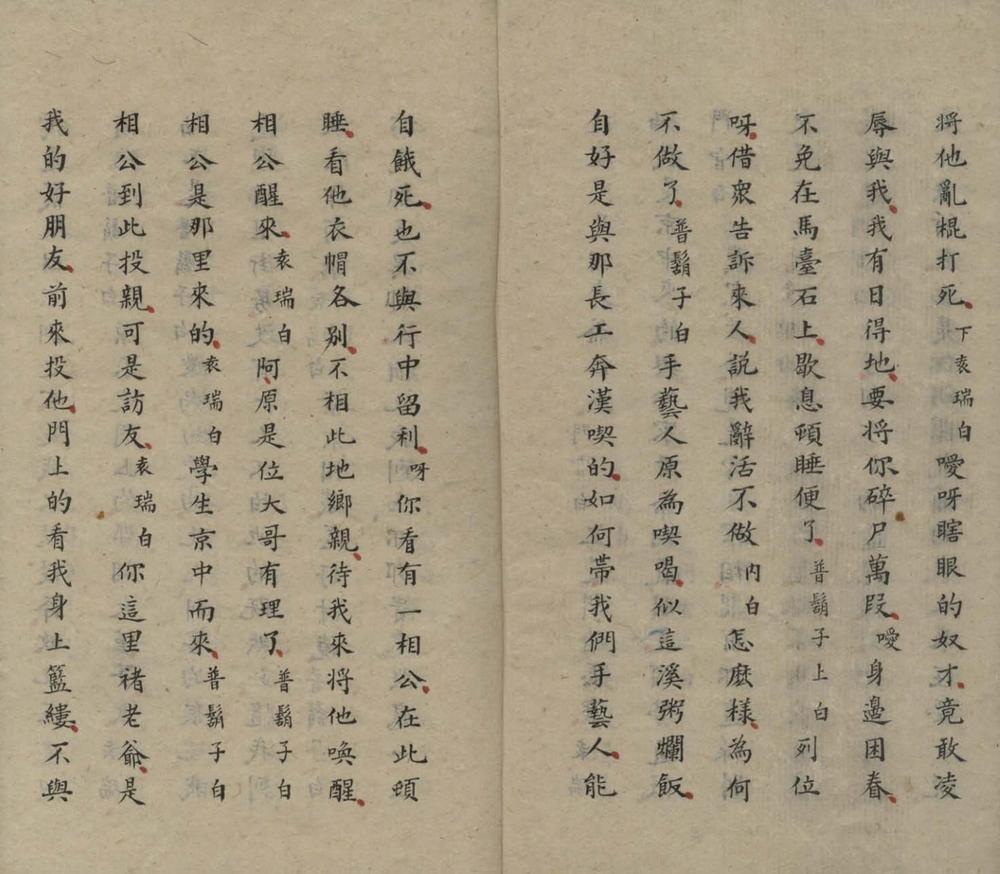 將他亂棍打死下袁瑞白噯呀瞎眼的奴才竟敢凌
辱與我我有日得地要將你碎尸萬段噯身邊困春
不免在馬臺石上歇息頓睡便了普鬍子上白列位
呀借衆告訴來人說我辭活不做內白怎麽樣為何
不做了普鬍子白手藝人原為喫喝似這溪粥爛飯
自好是與那長工奔漢喫的如何帶我們手藝人能
自餓死也不與行中留利呀你看有一相公在此頓
睡看他衣帽各别不相此地鄉親待我來將他喚醒
相公醒來袁瑞白阿原是位大哥有理了普鬍子白
相公是那里來的袁瑞白學生京中而來普鬍子白
相公到此投親可是訪友袁瑞白你這里禇老爺是
我的好朋友前來投他門上的看我身上籃縷不與